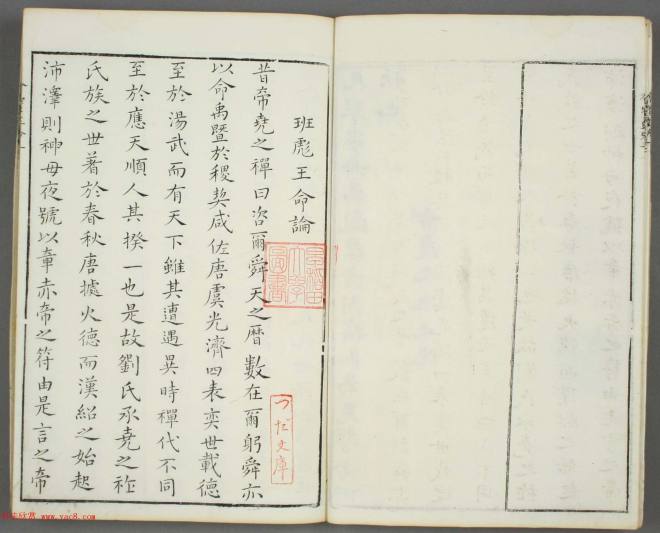 班彪王命論
昔帝堯之禪曰咨爾舜天之曆數在爾躬舜亦
以命禹暨於稷契咸佐唐虞光濟四表奕世載德
至於湯武而有天下雖其遭遇異時禪代不同
至於應天順人其揆一也是故劉氏承堯之祚
氏族之世著於春秋唐據火德而漢紹之始起
沛澤則神母夜號以章赤帝之符由是言之帝
つだ文庫
www.yac8.com